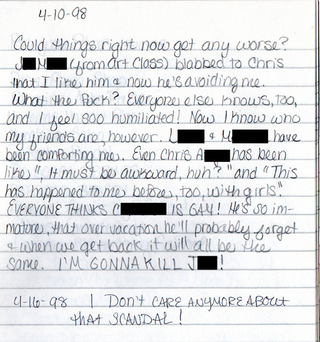 4-10-98
Could things right now get any worse?
J M (from Art Class) blabbed to Chris
that I like him & now he's avoiding me.
What the Fuck? Everyone else knows, too,
and I feel soo humiliated! Now I know who
my friends are, however. L & M have
been comforting me. Even Chris A has been
like ", It must be awkward, huh?" and "This
has happened to me before, too, with girls".
EVERYONE THINKS C IS GAY! He's so im-
mature, that over vacation he'll probably forget
& when we get back it will all be the
same. I'M GONNA KILL J !
4-16-98 I DON'T CARE ANYMORE ABOUT
that SCANDAL!